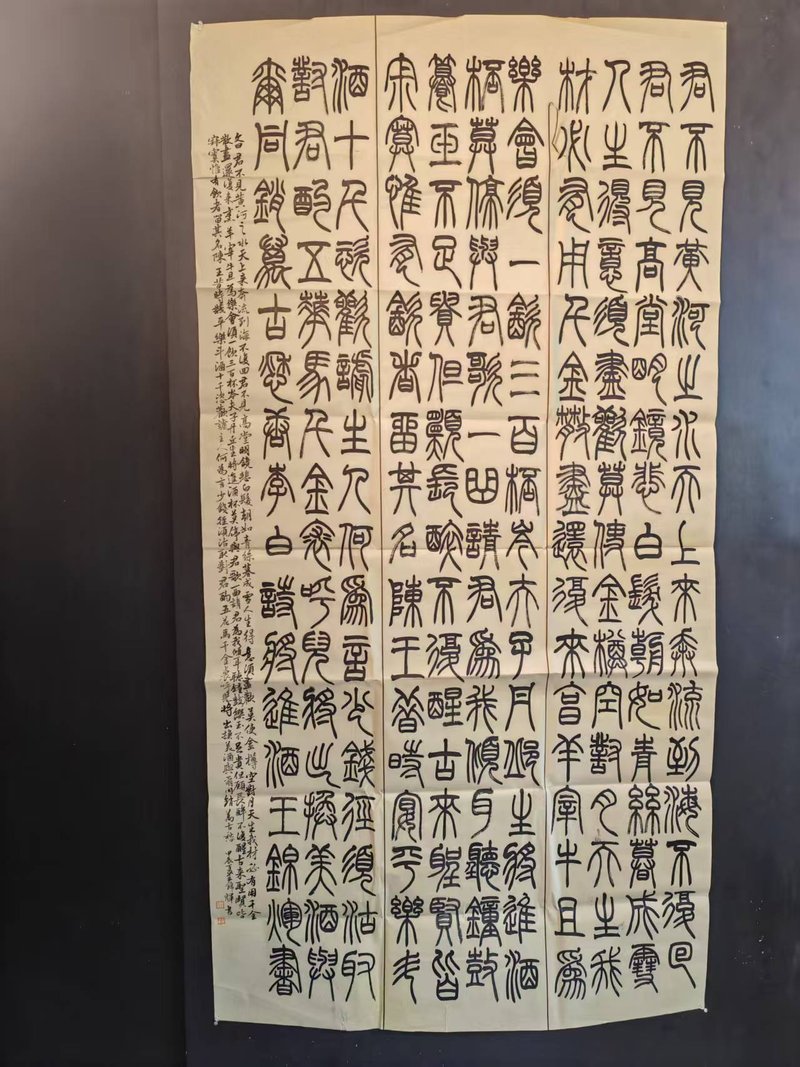 君不見黃河之水天上來奔流到海不復回
君不見高堂明鏡悲白髮朝如青絲暮成雪
人生得意須盡歡莫使金樽空對月天生我
材必有用千金散盡還復來烹羊宰牛且為
樂會須一飲三百杯岑夫子丹邱生將進酒
杯莫停與君歌一曲請君為我傾耳聽鐘鼓
饌玉不足貴但願長醉不復醒古來聖賢皆
寂寞惟有飲者留其名陳王昔時宴平樂斗
酒十千恣歡謔主人何為言少錢徑須沽取
對君酌五華馬千金裘呼兒將出換美酒與
爾同銷萬古愁唐李白詩將進酒王錦煇書
文曰君不見黃河之水天上來奔流到海不復回君不見高堂明鏡悲白髮朝如青絲暮成雪人生得意須盡歡莫使金樽空對月天生我材必有用千金
散盡還復來烹羊宰牛且為樂會須一飲三百杯岑夫子丹丘生將進酒杯莫停與君歌一曲請君為我傾耳聽鐘鼓饌玉不足貴但願長醉不復醒古來聖賢皆
寂寞惟有飲者留其名陳王昔時宴平樂斗酒十千恣歡謔主人何為言少錢徑須沽取對君酌五花馬千金裘呼兒將出換美酒與爾同銷萬古愁甲辰夏王錦煇書